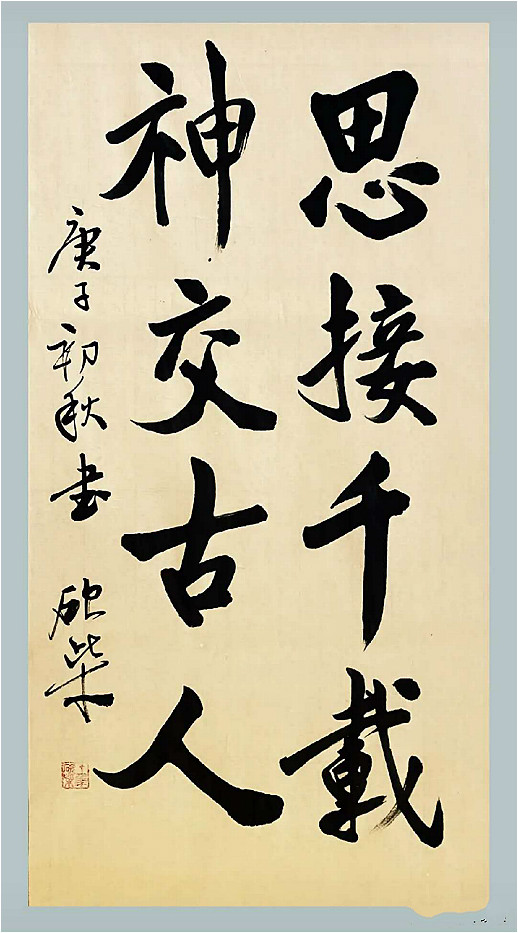 思接千載
神交古人
庚子初秋书